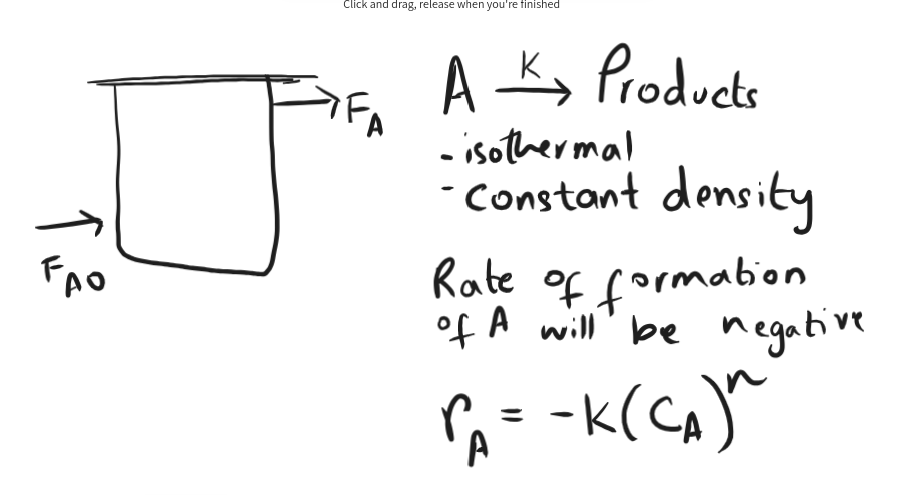 Click and drag, release when you're finished
F_A
F_A0
A —K→ Products
- isothermal
- constant density
Rate of formation
of A will be negative
r_A = -K(C_A)^n